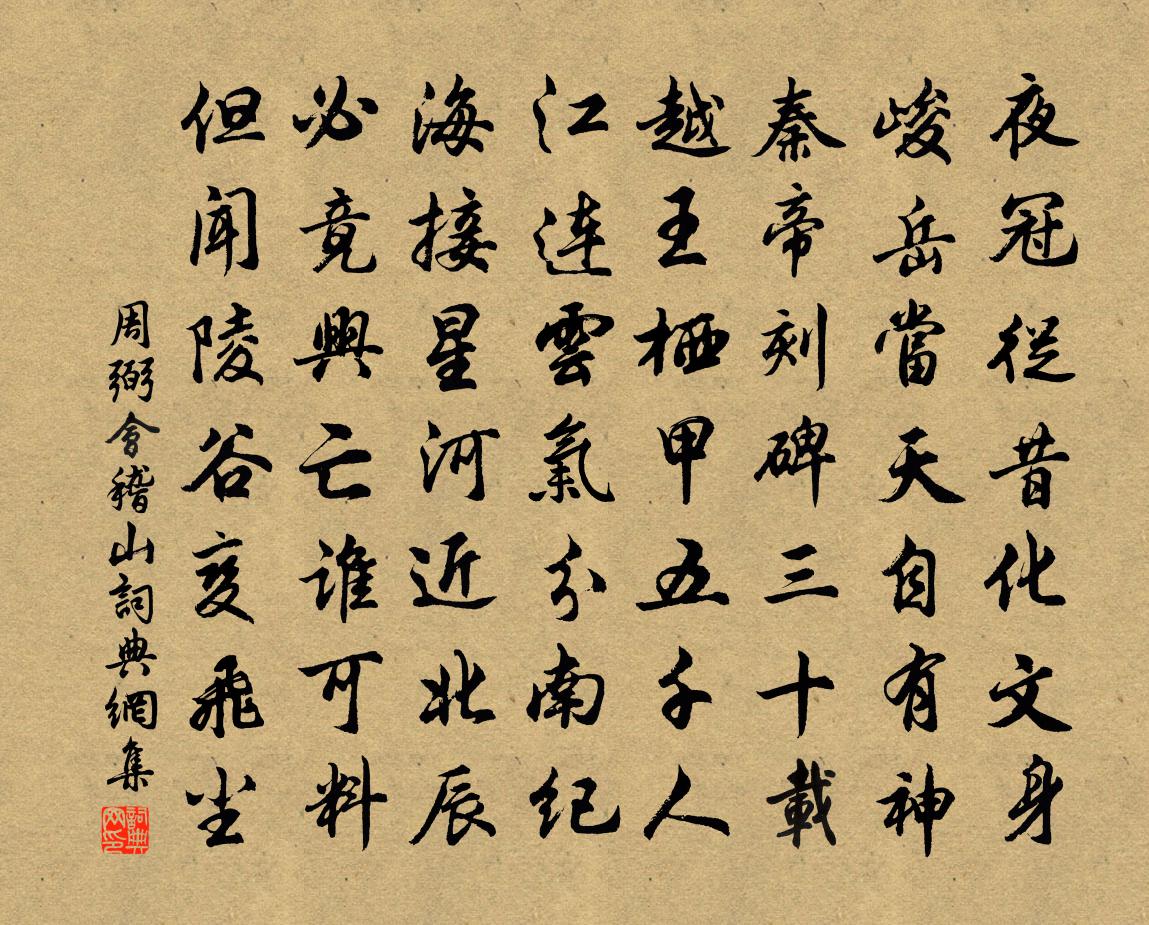 夜冠從昔化文身
峻岳當天自有神
秦帝刻碑三十載
越王栖甲五千人
江連雲氣分南纪
海接星河近北辰
必竟興亡誰可料
但闻陵谷变飛尘
周弼會稽山詞典網集
詞典网印